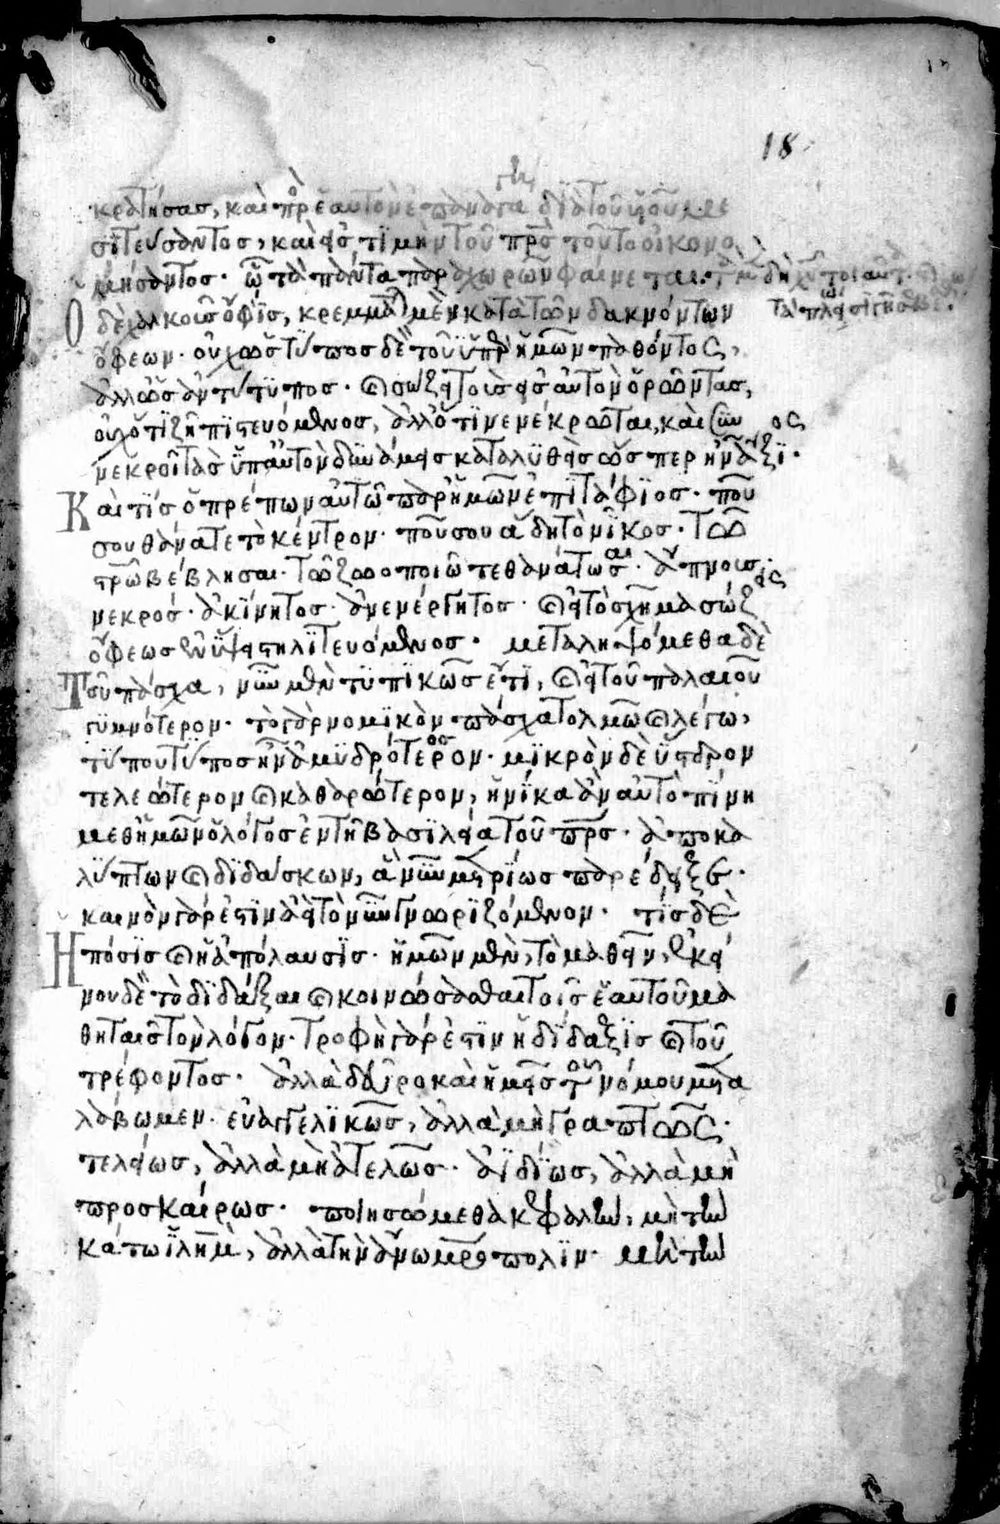 κρατήσας, καὶ πρὸς ἑαυτὸν ἐπανάγει διὰ τοῦ υἱοῦ με
σϊτευσάντος, καὶ εἰς τϊμὴν τοῦ πρς τοῦτο οἰκονο
μήσαντος. ᾧ τὰ πάντα παραχωρῶν φαίνεται. τὰ μὲν δὴ χυ τοιαῦτ. καὶ
τὰ πλείω σιγῇ σεβέσθω.
Ὁ δὲ χαλκοῦς ὄφϊς, κρεμμᾶται μὲν κατὰ τῶν δακνόντων
ὄφεων. οὐχ ὡς τύπος δὲ τοῦ ὑπὲρ ἡμῶν παθόντος,
ἀλλ' ὡς ἀντίτϋπος. καὶ σώζει τοὺς εἰς αὐτὸν ὁρῶντας,
οὐχ ὅτι ζῆν πϊστευόμενος, ἀλλ' ὅτϊ νενέκρωται, καὶ συν
νεκροῖ τὰς ὑπ' αὐτὸν δυνάμεις καταλϋθεὶς ὥσπερ ἦν ἄξϊος.
Καὶ τίς ὁ πρέπων αὐτῷ παρ' ἡμῶν ἐπϊτάφϊος. ποῦ
σου θάνατε τὸ κέντρον. ποῦ σου ἄδη τὸ νῖκος. τῷ
στρῷ βέβλησαι. τῷ ζωοποιῷ τεθανάτωσαι. ἄπνους εἶ.
νεκρός. ἀκίνητος. ἀνενέργητος. καὶ εἰ τὸ σχῆμα σώζεις
ὄφεως ἐν ὕψει στηλϊτευόμενος. μεταληψόμεθα δὲ
Τοῦ πάσχα, νῦν μὲν τϋπϊκῶς ἔτϊ, καὶ εἰ τοῦ παλαιοῦ
γϋμνότερον. τὸ γὰρ νομϊκὸν πάσχα τολμῶ καὶ λέγω,
τύπου τύπος ἦν ἀμϋδρότερος. μϊκρὸν δὲ ὕστερον
τελεώτερον καὶ καθαρώτερον, ἡνίκα ἂν αὐτὸ πίνῃ
μεθ' ἡμῶν ὁ λόγος ἐν τῇ βασϊλείᾳ τοῦ πρς. ἀποκα
λύπτων καὶ διδάσκων, ἃ νῦν μετρίως παρέδειξε.
καινὸν γάρ ἐστϊν ἀεὶ τὸ νῦν γνωρϊζόμενον. τίς δὲ
Ἡ πόσϊς καὶ ἡ ἀπόλαυσϊς. ἡμῶν μὲν, τὸ μαθεῖν, ἐκεί
νου δὲ τὸ διδάξαι καὶ κοινώσασθαι τοῖς ἑαυτοῦ μα
θηταῖς τὸν λόγον. τροφὴ γάρ ἐστϊν ἡ δίδαξϊς καὶ τοῦ
τρέφοντος. ἀλλὰ δεῦρο καὶ ἡμεῖς τοῦ νόμου μετα
λάβωμεν. εὐαγγελϊκῶς, ἀλλὰ μὴ γραπτῶς.
τελείως, ἀλλὰ μὴ ἀτελῶς. ἀϊδίως, ἀλλὰ μὴ
προσκαίρως. ποιησώμεθα κεφαλὴν, μὴ τὴν
κάτω ἰλὴμ, ἀλλὰ τὴν ἄνω μρόπολϊν. μὴ τὴν
18